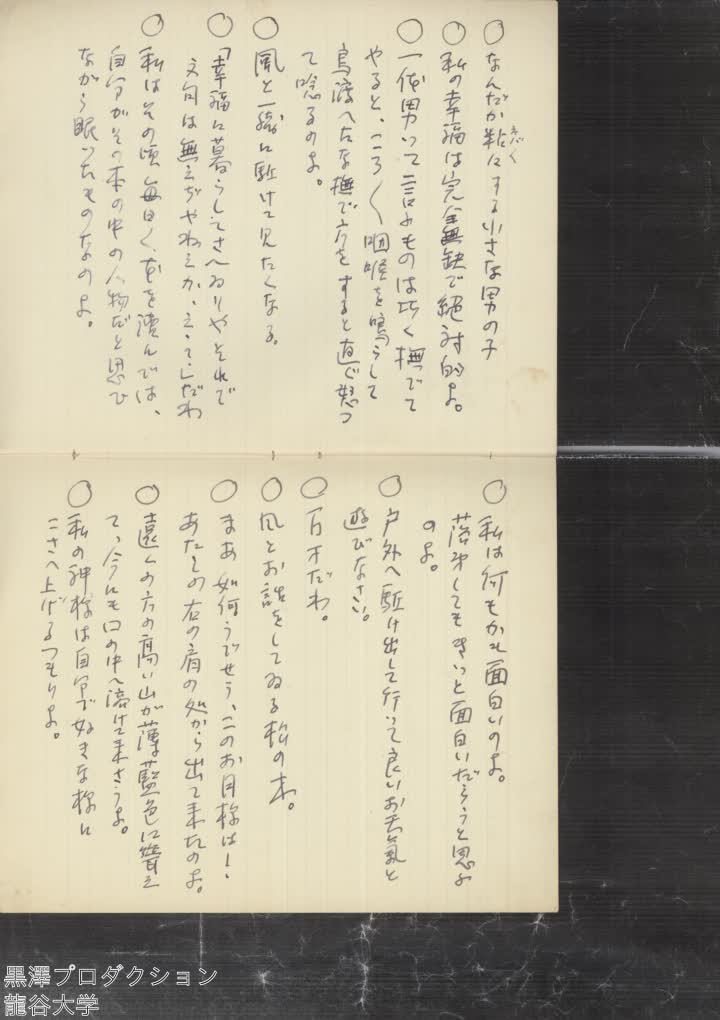 ○ なんだか粘々する小さな男の子
ねばく
○ 私の幸福は完全無缺で絶対的よ。
○ 一体男って言ふものは巧く撫でて
やると、ころ〱咽喉を鳴らして
鳥渡へたな撫で方をすると直ぐ怒つ
て唸るのよ。
風と一緒に駈けて見たくなる。
○ 「幸福に暮らしてさへゐりやそれで
文句は無えぢやねえか、えゝ、
○ 私はその頃毎日〱、本を讀んでは、
自分がその本の中の人物だと思ひ
ながら眠ったものなのよ。
○ 私は何もかも面白いのよ。
落第してもきっと面白いだらうと思ふ
のよ。
○ 戸外へ駈け出して行って良いお天氣と
遊びなさい。
○ 百才だわ。
○ 風とお話をしてゐる松の木。
○ まあ如何うでせう、このお月様は！
あたしの右の肩の処から出て来たのよ。
○ 遠くの方の高い山が薄藍色に聳え
て、今にも口の中へ溶けて来さうよ。
○ 私の神様は自分で好きな様に
こさへ上げるつもりよ。
黒澤プロダクション
龍谷大学